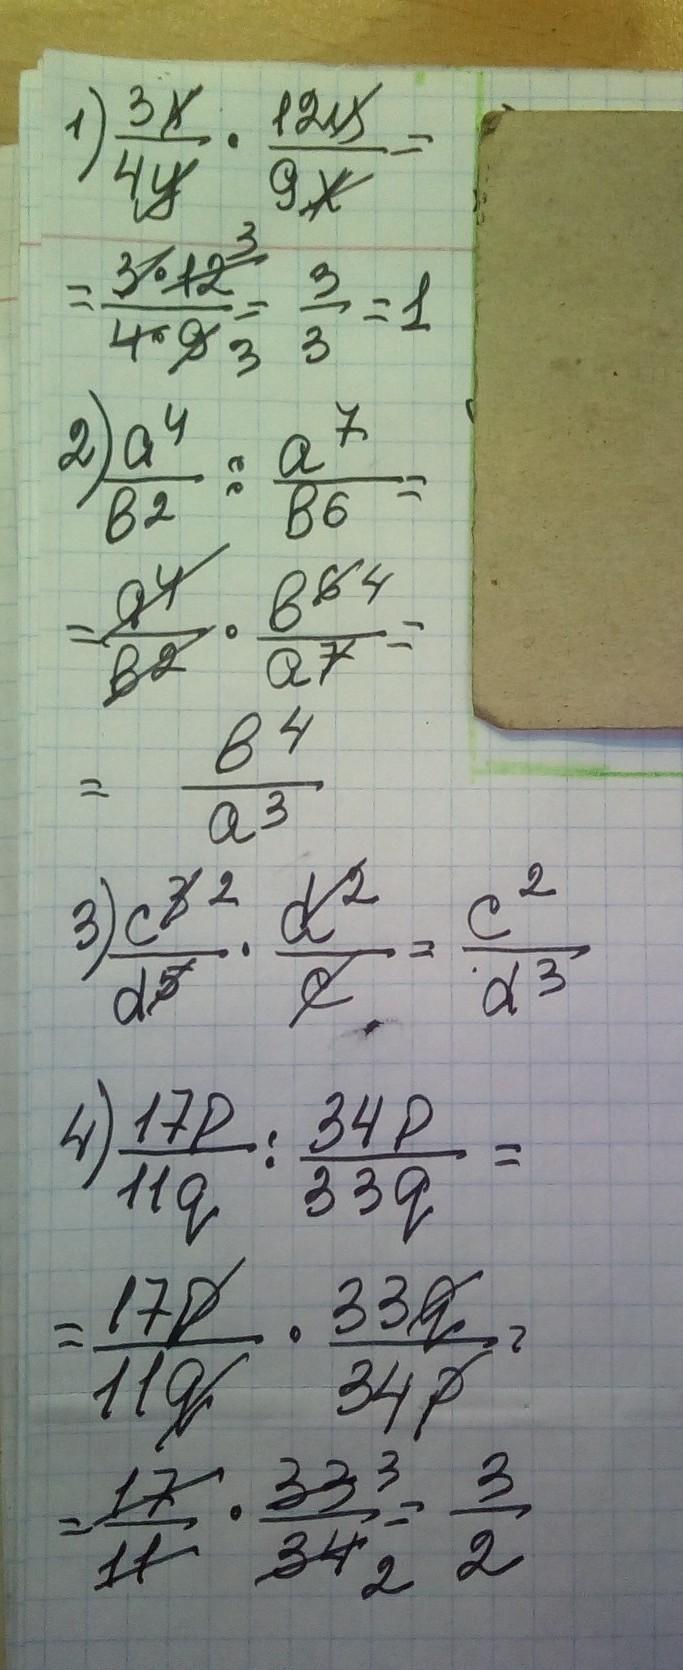 1) 3x/4y · 12y/9x =
= 3·12 3/4·9 3 = 3/3 = 1
2) a⁴/b² : a⁷/b⁶ =
= a⁴/b² · b⁶ 4/a⁷ =
= b⁴/a³
3) c³ 2/d⁵ · d²/c = c²/d³
4) 17p/11q : 34p/33q =
= 17p/11q · 33q/34p =
= 17/11 · 33 3/34 2 = 3/2